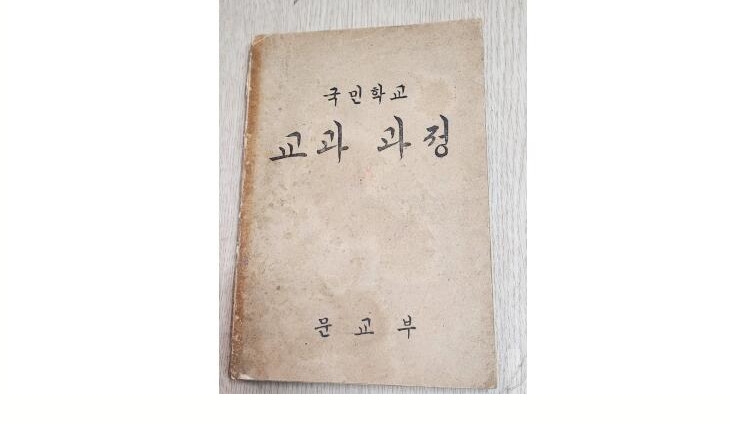 국민학교
교과 과정
문교부